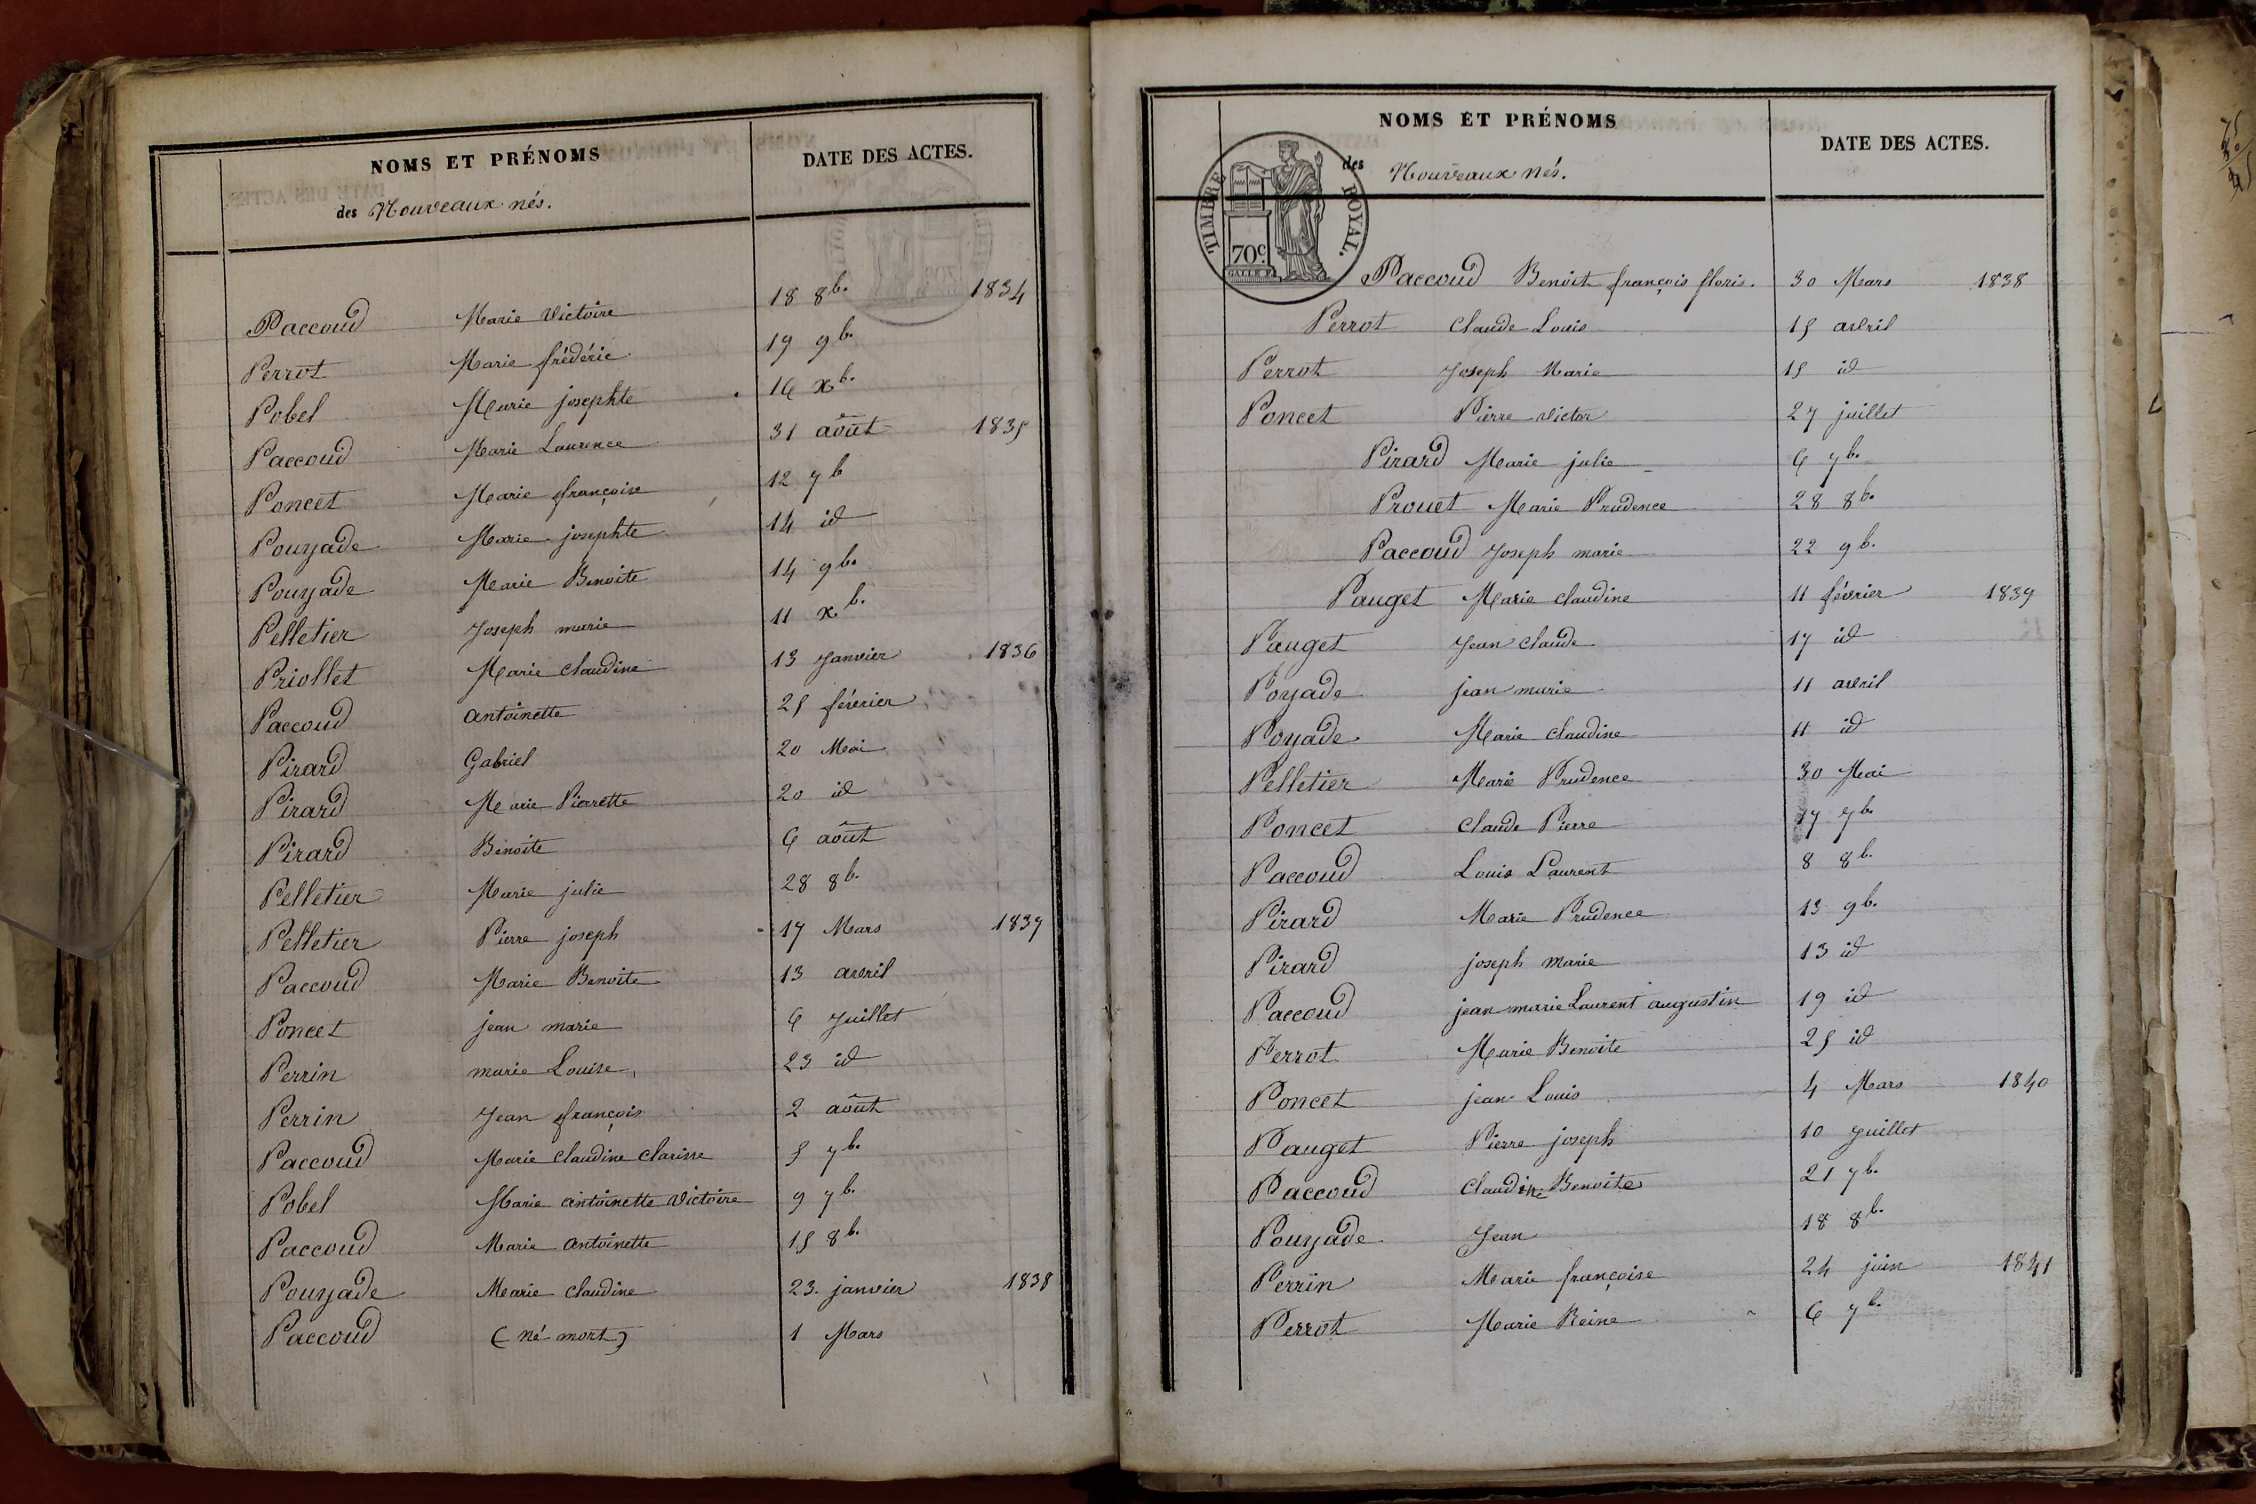 NOMS ET PRÉNOMS
DATE DES ACTES.
des Nouveaux nés.
Paccoud Marie Victoire 18 8b. 1834
Perrot Marie frédéric 19 9b.
Pobel Marie josephte 16 xb.
Paccoud Marie Laurence 31 août 1835
Poncet Marie françoise 12 7b
Pouyade Marie josephte 14 id
Pouyade Marie Benoite 14 9b.
Pelletier Joseph marie 11 xb.
Priollet Marie claudine 13 Janvier 1836
Paccoud antoinette 25 février
Pirard Gabriel 20 Mai
Pirard Marie Pierrette 20 id
Pirard Benoite 6 août
Pelletier Marie julie 28 8b.
Pelletier Pierre joseph 17 Mars 1837
Paccoud Marie Benoite 13 avril
Poncet jean marie 6 Juillet
Perrin marie Louise 23 id
Perrin Jean françois 2 août
Paccoud Marie claudine clarisse 5 7b.
Pobel Marie antoinette Victoire 9 7b.
Paccoud Marie antoinette 15 8b.
Pouyade Marie claudine 23. janvier 1838
Paccoud (né mort) 1 Mars
NOMS ET PRÉNOMS
DATE DES ACTES.
des Nouveaux nés.
TIMBRE ROYAL.
70c.
Paccoud Benoit françois floris. 30 Mars 1838
Perrot claude Louis 15 avril
Perrot Joseph Marie 15 id
Poncet Pierre victor 27 juillet
Pirard Marie julie 6 7b.
Prouet Marie Prudence 28 8b.
Paccoud Joseph marie 22 9b.
Pauget Marie claudine 11 février 1839
Pauget Jean claude 17 id
Poyade jean marie 11 avril
Poyade Marie claudine 11 id
Pelletier Marie Prudence 30 Mai
Poncet claude Pierre 17 7b.
Paccoud Louis Laurent 8 8b.
Pirard Marie Prudence 13 9b.
Pirard joseph marie 13 id
Paccoud jean marie Laurent augustin 19 id
Perrot Marie Benoite 25 id
Poncet jean Louis 4 Mars 1840
Pauget Pierre joseph 10 Juillet
Paccoud claudine Benoite 21 7b.
Pouyade Jean 18 8b.
Perrin Marie françoise 24 juin 1841
Perrot Marie Reine 6 7b.